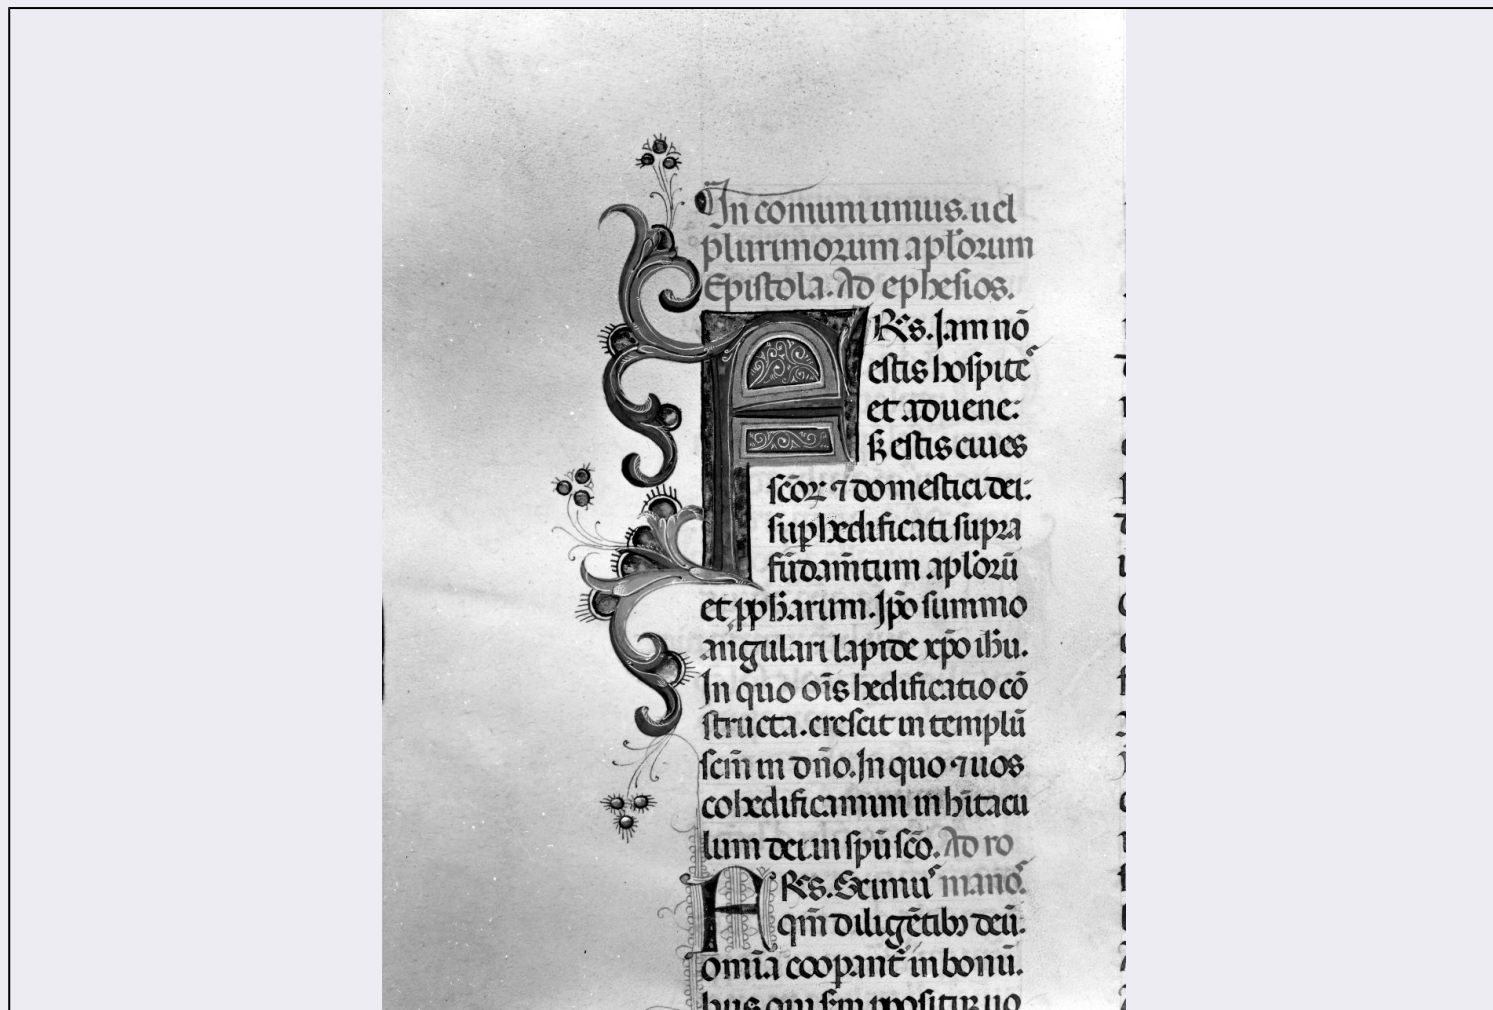 In comuni unius. uel
plurimorum apl̄orum
Epistola. Ad ephesios.
FRēs. Iam nō
estis hospites
et aduene:
s; estis ciues
sc̄oꝝ ⁊ domestici dei:
suꝑhedificati supra
fūdam̄tum apl̄oꝝū
et ꝓph̄arum. Ip̄o summo
angulari lapide xp̄o ih̄u.
In quo oīs hedificatio cō
structa. crescit in templū
scm̄ in dn̄o. In quo ⁊ uos
cohedificamini in hītacu
lum dei in sp̄u sc̄o. Ad ro
manos.
FRēs. Scimus
qm̄ diligētibꝫ deū:
omīa cooꝑant̄ in bonū.